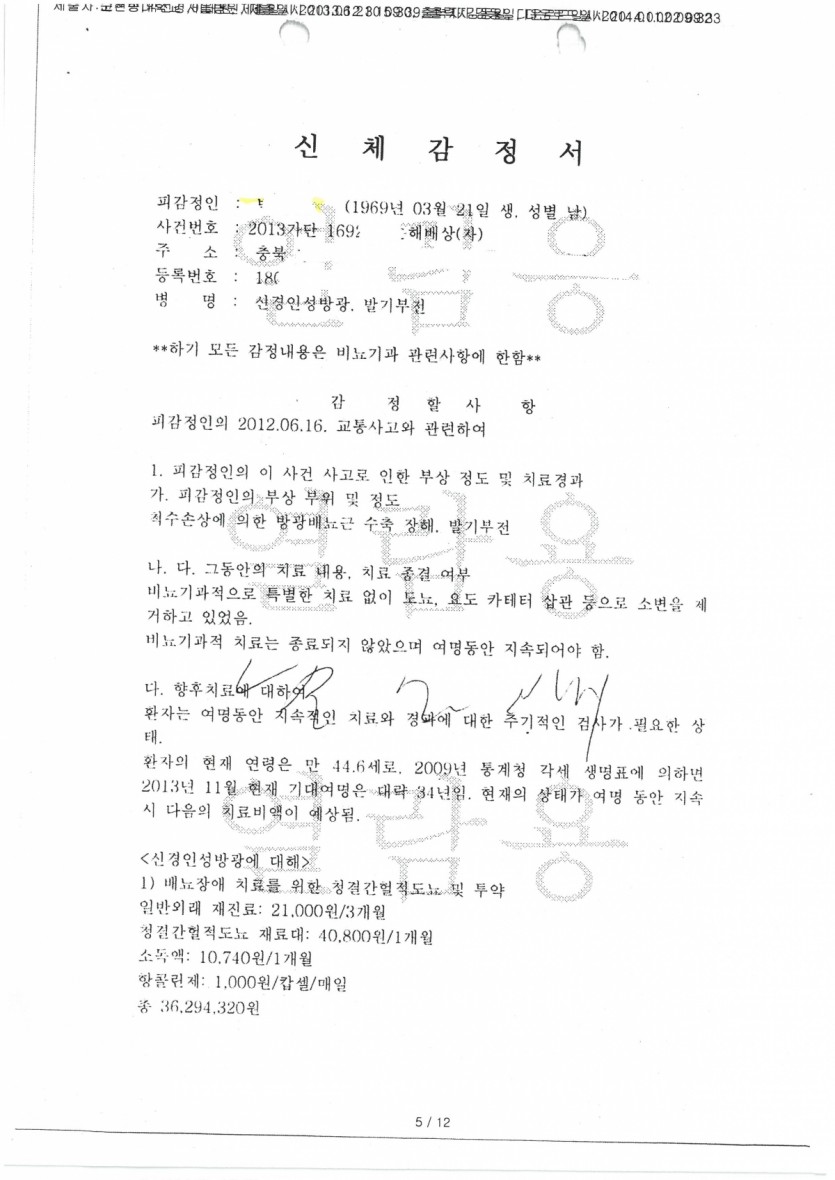 신 체 감 정 서
피감정인 : (1969년 03월 21일 생, 성별 남)
사건번호 : 2013가단 169 해배상(자)
주 소 : 충북
등록번호 : 18
병 명 : 신경인성방광, 발기부전
**하기 모든 감정내용은 비뇨기과 관련사항에 한함**
감 정 할 사 항
피감정인의 2012.06.16. 교통사고와 관련하여
1. 피감정인의 이 사건 사고로 인한 부상 정도 및 치료경과
가. 피감정인의 부상 부위 및 정도
척수손상에 의한 방광배뇨근 수축 장해, 발기부전
나. 다. 그동안의 치료 내용, 치료 종결 여부
비뇨기과적으로 특별한 치료 없이 도뇨, 요도 카테터 삽관 등으로 소변을 제
거하고 있었음.
비뇨기과적 치료는 종료되지 않았으며 여명동안 지속되어야 함.
다. 향후치료에 대하여
환자는 여명동안 지속적인 치료와 경과에 대한 주기적인 검사가 필요한 상
태.
환자의 현재 연령은 만 44.6세로, 2009년 통계청 각세 생명표에 의하면
2013년 11월 현재 기대여명은 대략 34년임. 현재의 상태가 여명 동안 지속
시 다음의 치료비액이 예상됨.
<신경인성방광에 대해>
1) 배뇨장애 치료를 위한 청결간헐적도뇨 및 투약
일반외래 재진료: 21,000원/3개월
청결간헐적도뇨 재료대: 40,800원/1개월
소독액: 10,740원/1개월
항콜린제: 1,000원/캅셀/매일
총 36,294,320원
열람용
열람용
열람용
5 / 12